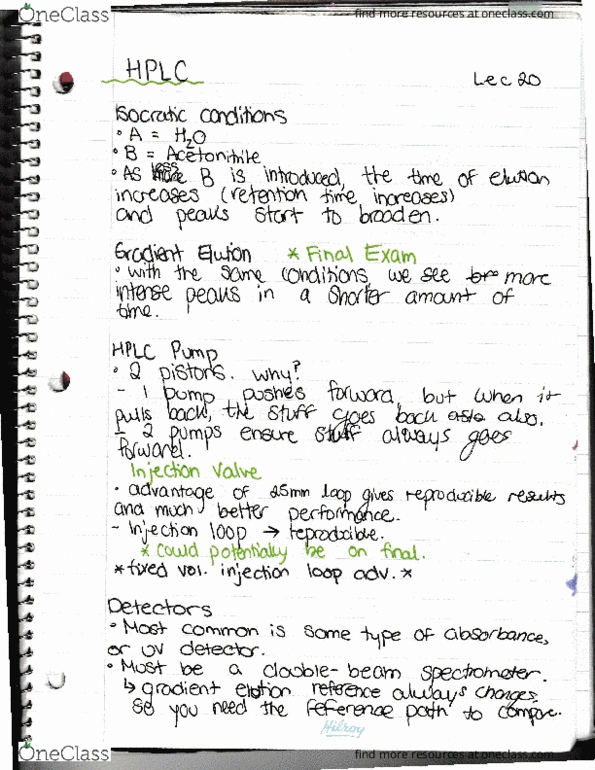 OneClass
find more resources at oneclass.com
HPLC
Lec 20
Isocratic conditions
• A = H2O
• B = Acetonitrile
• As less B is introduced, the time of elution
increases (retention time increases)
and peaks start to broaden.
Gradient Elution * Final Exam
• with the same conditions we see more
intense peaks in a shorter amount of
time.
HPLC Pump
• 2 pistons. why?
- 1 pump pushes forward, but when it
pulls back, the stuff goes back also.
- 2 pumps ensure stuff always goes
forward.
Injection Valve
• advantage of 25mm loop gives reproducible results
and much better performance.
- Injection loop → reproducible.
* could potentially be on final.
*fixed vol. injection loop adv. *
Detectors
• Most common is some type of absorbance,
or UV detector.
• Must be a double-beam spectrometer.
↳ gradient elution reference always changes,
so you need the reference path to compare.
Hilroy
OneClass
find more resources at oneclass.com